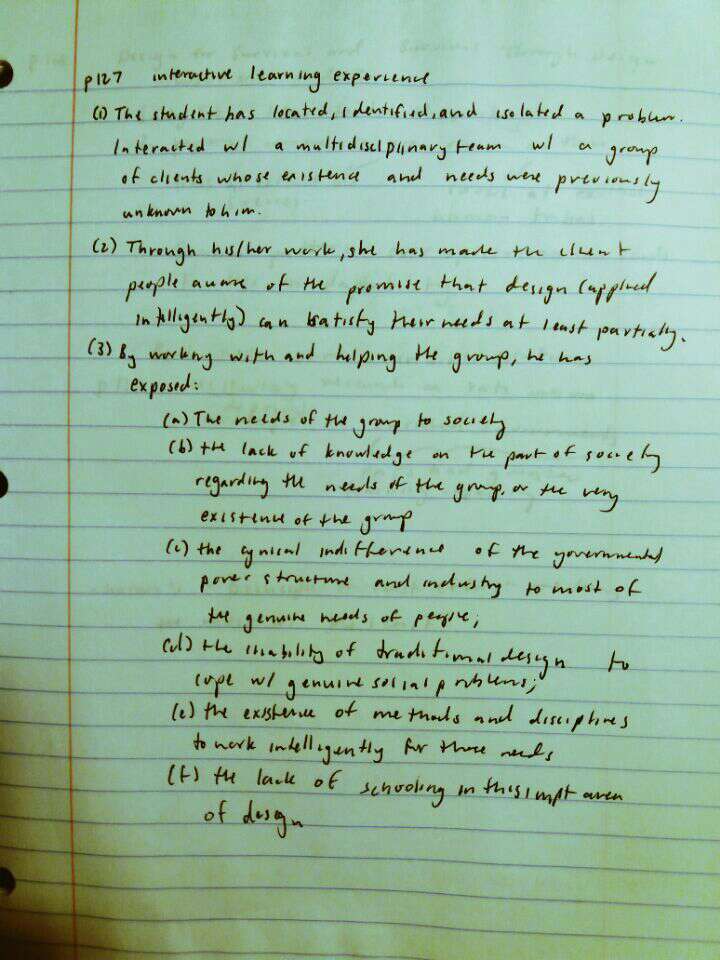 p127 interactive learning experience
(1) The student has located, identified, and isolated a problem.
Interacted w/ a multidisciplinary team w/ a group
of clients whose existence and needs were previously
unknown to him.
(2) Through his/her work, she has made the client
people aware of the promise that design (applied
intelligently) can satisfy their needs at least partially.
(3) By working with and helping the group, he has
exposed:
(a) The needs of the group to society
(b) the lack of knowledge on the part of society
regarding the needs of the group, or the very
existence of the group
(c) the cynical indifference of the governmental
power structure and industry to most of
the genuine needs of people;
(d) the inability of traditional design to
cope w/ genuine social problems;
(e) the existence of methods and disciplines
to work intelligently for those needs
(f) the lack of schooling in this impt area
of design